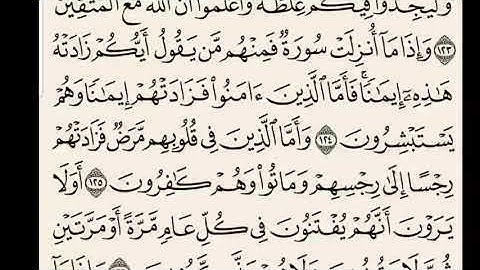 وَلْيَجِدُوا۟ فِيكُمْ غِلْظَةً وَٱعْلَمُوٓا۟ أَنَّ ٱللَّهَ مَعَ ٱلْمُتَّقِينَ
﴿١٢٣﴾ وَإِذَا مَآ أُنزِلَتْ سُورَةٌ فَمِنْهُم مَّن يَقُولُ أَيُّكُمْ زَادَتْهُ
هَٰذِهِۦٓ إِيمَٰنًا ۚ فَأَمَّا ٱلَّذِينَ ءَامَنُوا۟ فَزَادَتْهُمْ إِيمَٰنًا وَهُمْ
يَسْتَبْشِرُونَ ﴿١٢٤﴾ وَأَمَّا ٱلَّذِينَ فِى قُلُوبِهِم مَّرَضٌ فَزَادَتْهُمْ
رِجْسًا إِلَىٰ رِجْسِهِمْ وَمَاتُوا۟ وَهُمْ كَٰفِرُونَ ﴿١٢٥﴾ أَوَلَا
يَرَوْنَ أَنَّهُمْ يُفْتَنُونَ فِى كُلِّ عَامٍ مَّرَّةً أَوْ مَرَّتَيْنِ